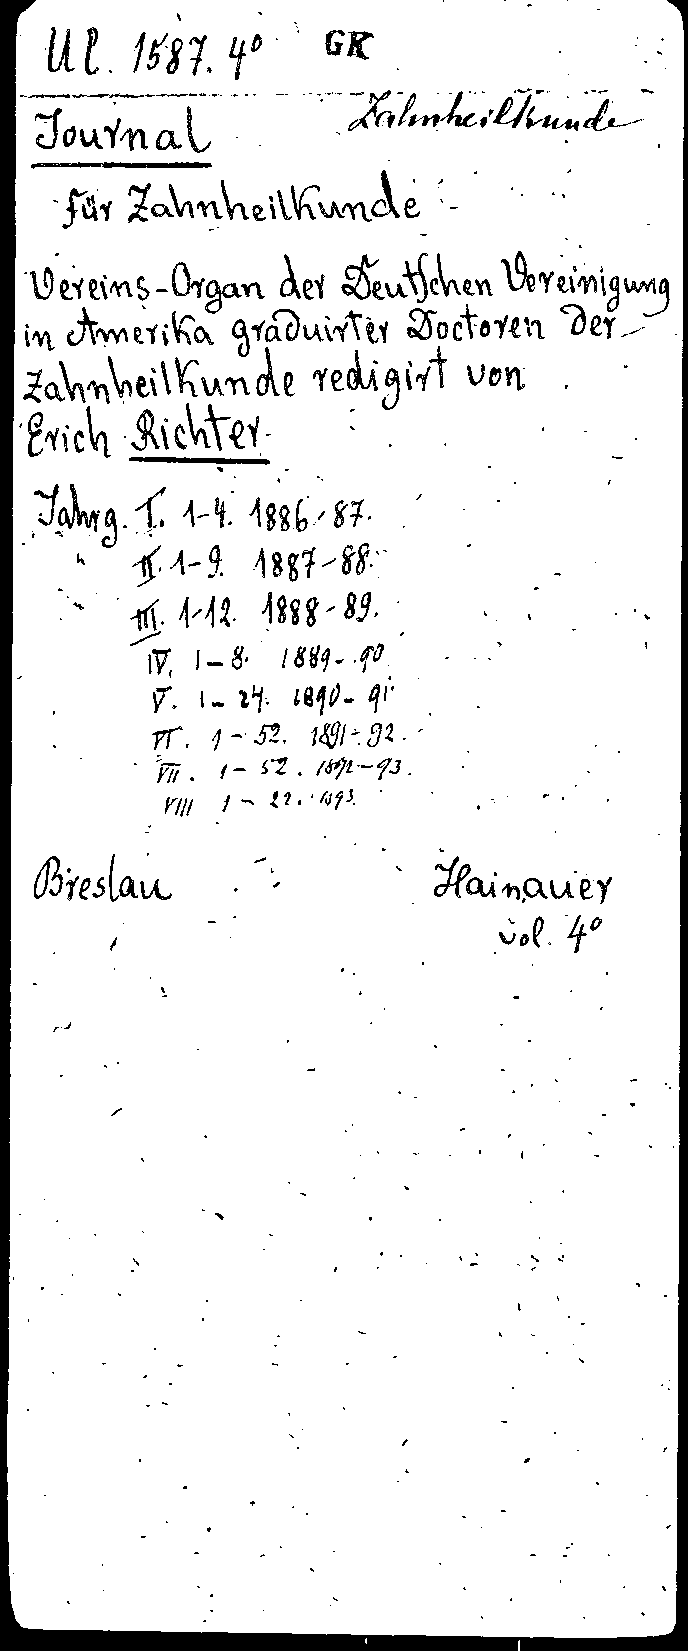 Ul. 1587. 4° GK
Zahnheilkunde
Journal
für Zahnheilkunde
Vereins-Organ der Deutschen Vereinigung
in Amerika graduirter Doctoren der
Zahnheilkunde redigirt von
Erich Richter.
Jahrg. I. 1-4. 1886-87.
" II. 1-9. 1887-88.
" III. 1-12. 1888-89.
IV. 1-8. 1889-90
V. 1-24. 1890-91
VI. 1-52. 1891-92.
VII. 1-52. 1892-93.
VIII 1-22. 1893.
Breslau Hainauer
vol. 4°